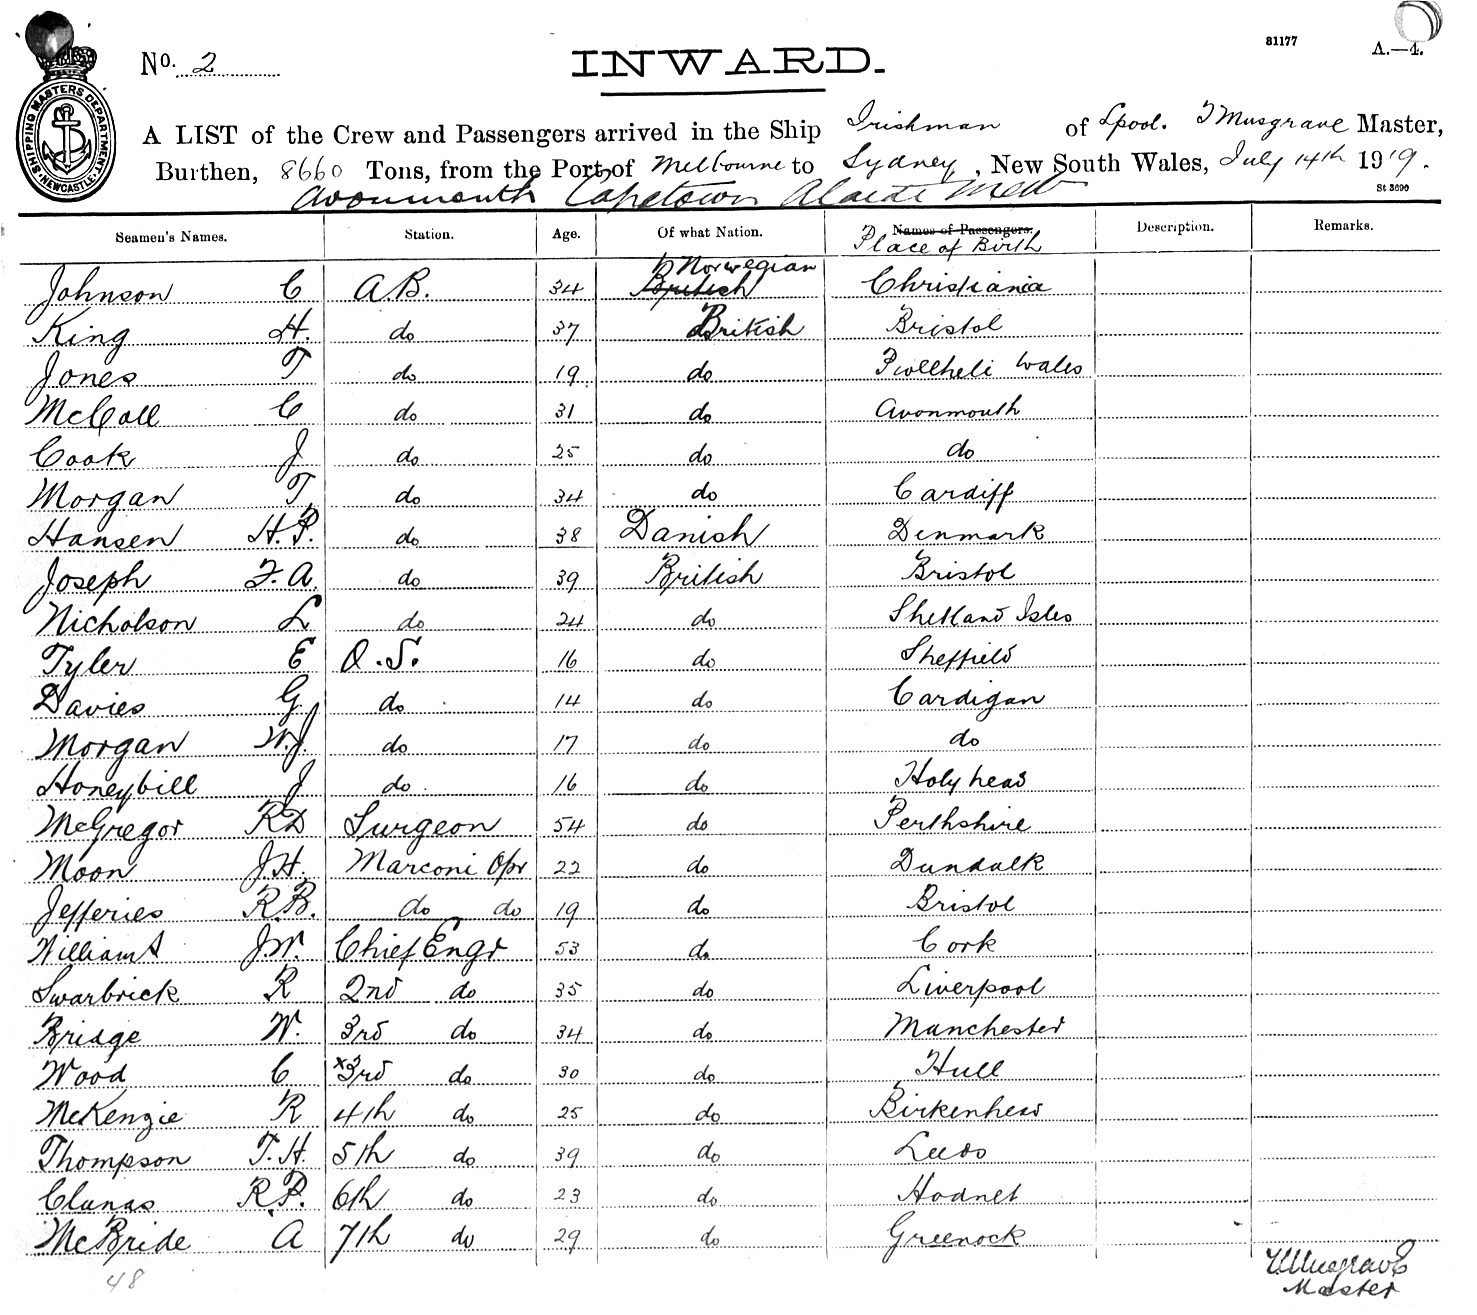 SHIPPING MASTERS DEPARTMENT. NEWCASTLE
No. 2
INWARD.
81177
A.—4.
A LIST of the Crew and Passengers arrived in the Ship Irishman of Lpool. T Musgrave Master,
Burthen, 8660 Tons, from the Port of Melbourne to Sydney, New South Wales, July 14th 1919.
Avonmouth Capetown Alaide Melb
St 3690
Seamen's Names. Station. Age. Of what Nation. Names of Passengers. Description. Remarks.
Place of Birth
Norwegian
Johnson C A.B. 34 British Christiania
King H. do 37 British Bristol
Jones T do 19 do Pwllheli Wales
McCall C do 31 do Avonmouth
Cook J do 25 do do
Morgan T do 34 do Cardiff
Hansen H.P. do 38 Danish Denmark
Joseph F.A. do 39 British Bristol
Nicholson L do 24 do Shetland Isles
Tyler E O.S. 16 do Sheffield
Davies G do 14 do Cardigan
Morgan W.J. do 17 do do
Honeybill J do 16 do Holyhead
McGregor RD Surgeon 54 do Perthshire
Moon J.H. Marconi Opr 22 do Dundalk
Jefferies R.B. do do 19 do Bristol
Williams J.W. Chief Engr 53 do Cork
Swarbrick R 2nd do 35 do Liverpool
Bridge W. 3rd do 34 do Manchester
Wood C x3rd do 30 do Hull
McKenzie R 4th do 25 do Birkenhead
Thompson T.H. 5th do 39 do Leeds
Clunas R.P. 6th do 23 do Hodnet
McBride A 7th do 29 do Greenock
48
T Musgrave
Master